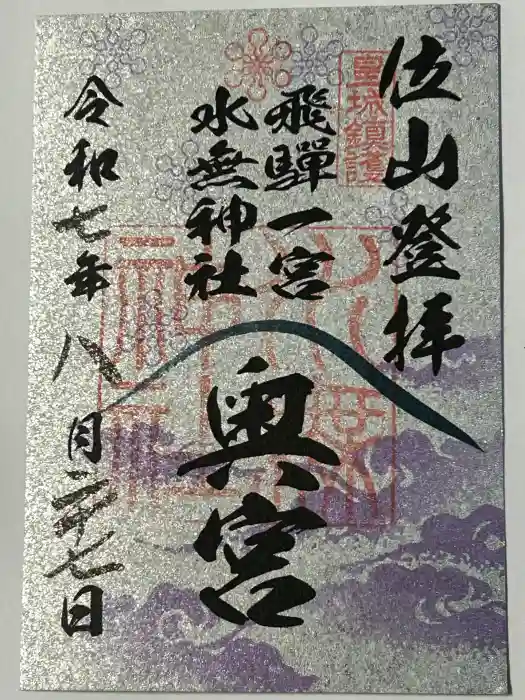 位山登拝
皇城鎮護
飛騨一宮
水無神社
奥宮
令和七年八月二十七日